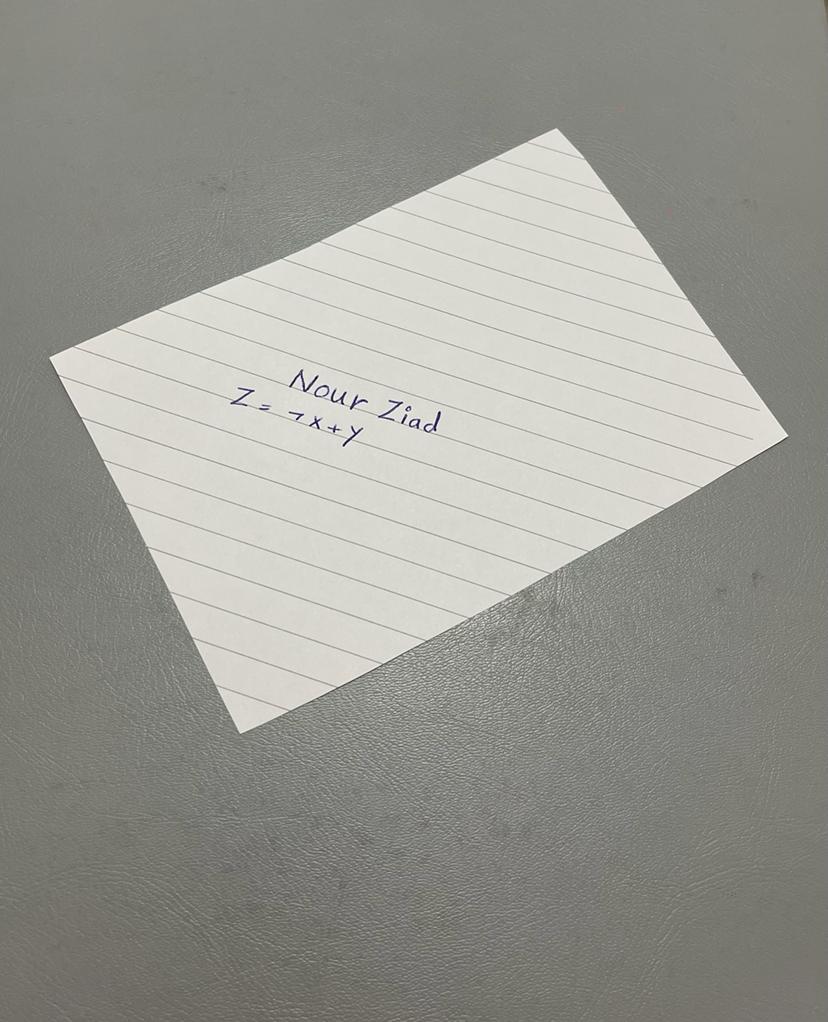 Nour Ziad
Z = 7x+y